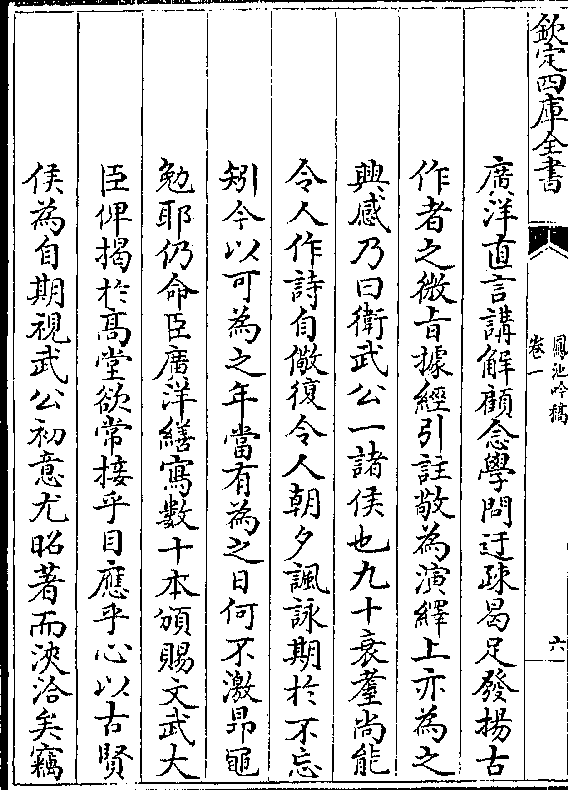 欽定四庫全書
鳳池吟稿
卷一
六
廣洋直言講解顧念學問迂疎曷足發揚古
作者之微旨據經引註敬為演繹上亦為之
興感乃曰衛武公一諸侯也九十衰耋尚能
令人作詩自儆復令人朝夕諷詠期於不忘
矧今以可為之年當有為之日何不激昂黽
勉耶仍命臣廣洋繕寫數十本頒賜文武大
臣俾揭於髙堂欲常接乎目應乎心以古賢
侯為自期視武公初意尤昭著而浹洽矣竊